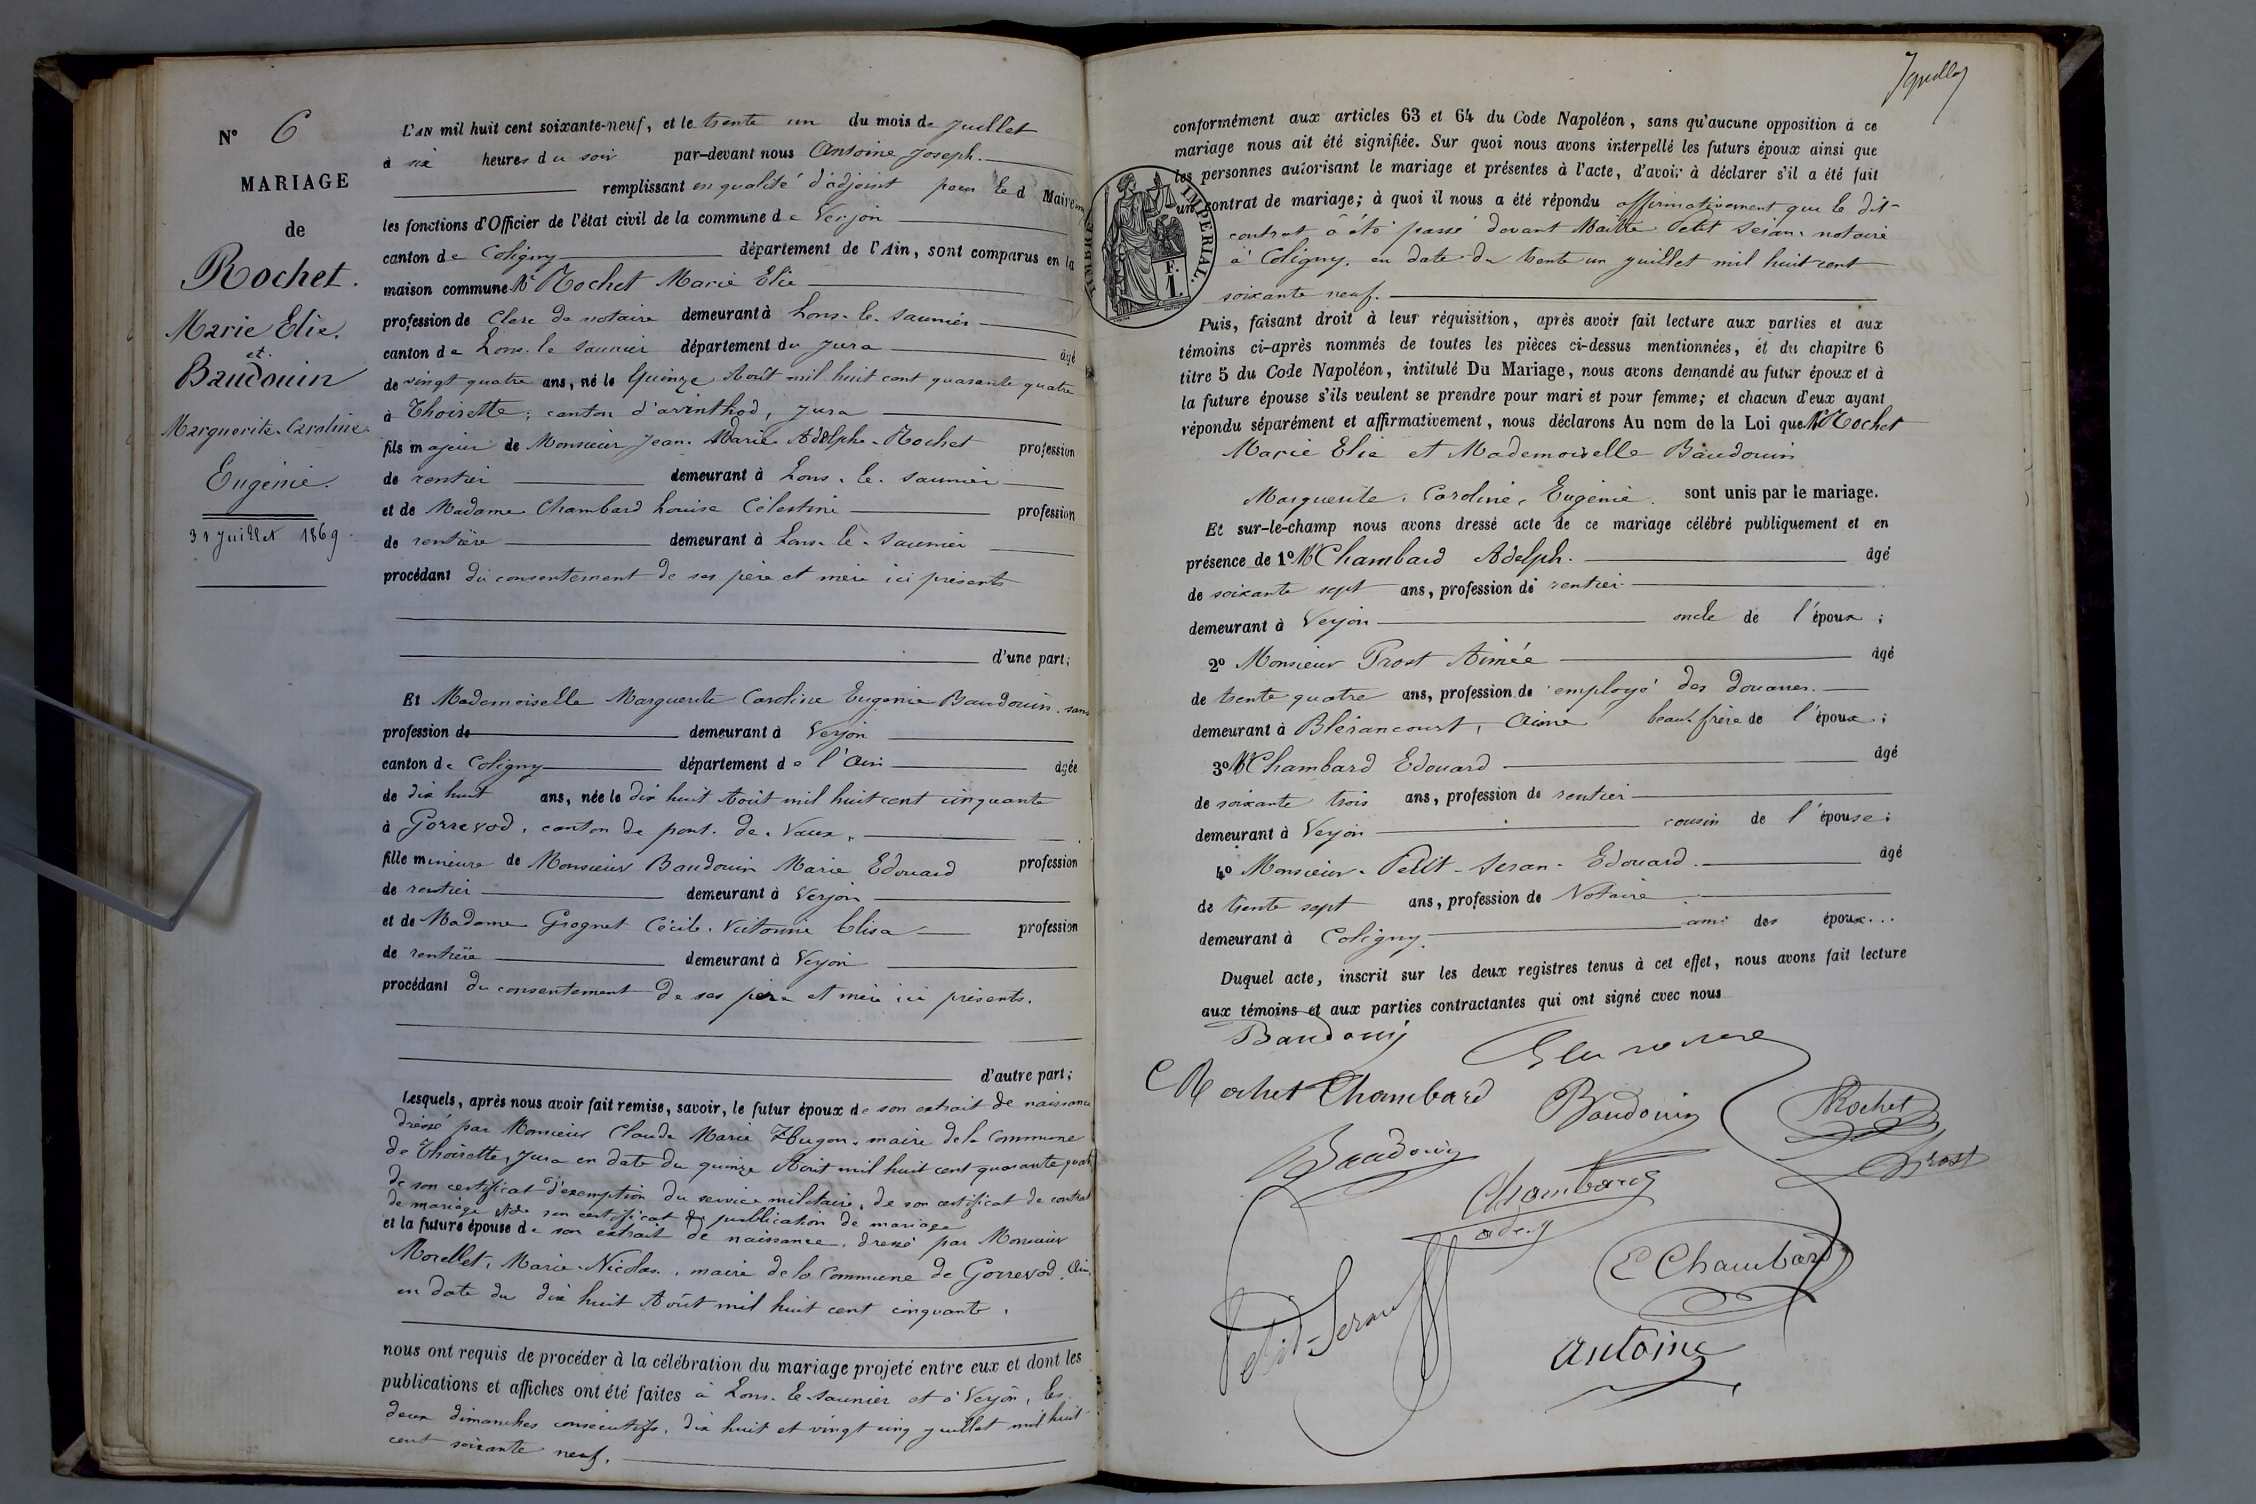 N° 6
MARIAGE
de
Rochet.
Marie Elie.
et.
Baudouin
Marguerite. Caroline.
Eugénie.
31 Juillet 1869.
L'AN mil huit cent soixante-neuf, et le trente un du mois de Juillet
à six heures du soir par-devant nous Antoine Joseph.
remplissant en qualité d'adjoint pour le d Maire
les fonctions d'Officier de l'état civil de la commune de Verjon
canton de Coligny département de l'Ain, sont comparus en la
maison commune Mr Rochet Marie Elie
profession de Clerc de notaire demeurant à Lons-le-Saunier
canton de Lons-le Saunier département du Jura âgé
de vingt quatre ans, né le Quinze Août mil huit cent quarante quatre
à Thoirette, canton d'arinthod, Jura
fils majeur de Monsieur Jean-Marie-Adolphe-Rochet profession
de rentier demeurant à Lons-le-Saunier
et de Madame Chambard Louise Célestine profession
de rentière demeurant à Lons-le-Saunier
procédant du consentement de ses père et mère ici présents
d'une part;
Et Mademoiselle Marguerite Caroline Eugénie Baudouin, sans
profession de demeurant à Verjon
canton de Coligny département de l'Ain âgée
de dix huit ans, née le dix huit Août mil huit cent cinquante
à Gorrevod, canton de pont-de-Vaux,
fille mineure de Monsieur Baudouin Marie Edouard profession
de rentier demeurant à Verjon
et de Madame Grognet Cécile Victorine Elisa profession
de rentière demeurant à Verjon
procédant du consentement de ses père et mère ici présents.
d'autre part;
Lesquels, après nous avoir fait remise, savoir, le futur époux de son extrait de naissance
dressé par Monsieur Claude Marie Hugon, maire de la Commune
de Thoirette, Jura en date du quinze Août mil huit cent quarante quatre
de son certificat d'exemption du service militaire, de son certificat de contrat
de mariage et de son certificat de publication de mariage
et la future épouse de son extrait de naissance, dressé par Monsieur
Morellet, Marie-Nicolas, maire de la Commune de Gorrevod, Ain,
en date du dix huit Août mil huit cent cinquante.
nous ont requis de procéder à la célébration du mariage projeté entre eux et dont les
publications et affiches ont été faites à Lons-le-Saunier et à Verjon, les
deux dimanches consécutifs, dix huit et vingt cinq juillet mil huit
cent soixante neuf.
conformément aux articles 63 et 64 du Code Napoléon, sans qu'aucune opposition à ce
mariage nous ait été signifiée. Sur quoi nous avons interpellé les futurs époux ainsi que
les personnes autorisant le mariage et présentes à l'acte, d'avoir à déclarer s'il a été fait
un contrat de mariage; à quoi il nous a été répondu affirmativement que le dit-
contrat a été passé devant Maître Petit Seran notaire
à Coligny, en date du trente un juillet mil huit cent
soixante neuf.
TIMBRE IMPERIAL.
F.
1.
Puis, faisant droit à leur réquisition, après avoir fait lecture aux parties et aux
témoins ci-après nommés de toutes les pièces ci-dessus mentionnées, et du chapitre 6
titre 5 du Code Napoléon, intitulé Du Mariage, nous avons demandé au futur époux et à
la future épouse s'ils veulent se prendre pour mari et pour femme; et chacun d'eux ayant
répondu séparément et affirmativement, nous déclarons Au nom de la Loi que Mr Rochet
Marie Elie et Mademoiselle Baudouin
Marguerite, Caroline, Eugénie. sont unis par le mariage.
Et sur-le-champ nous avons dressé acte de ce mariage célébré publiquement et en
présence de 1° Mr Chambard Adolph. âgé
de soixante sept ans, profession de rentier
demeurant à Verjon oncle de l'époux;
2° Monsieur Prost Aimée âgé
de trente quatre ans, profession de employé des douanes.
demeurant à Blérancourt, Aisne beau-frère de l'époux;
3° Mr Chambard Edouard âgé
de soixante trois ans, profession de rentier
demeurant à Verjon cousin de l'épouse;
4° Monsieur-Petit-Seran-Edouard. âgé
de trente sept ans, profession de Notaire
demeurant à Coligny. ami des époux...
Duquel acte, inscrit sur les deux registres tenus à cet effet, nous avons fait lecture
aux témoins et aux parties contractantes qui ont signé avec nous
Baudouin
Rochet Chambard Baudouin Rochet
Baudouin Chambard Prost
E Chambard
Petit-Seran
Antoine